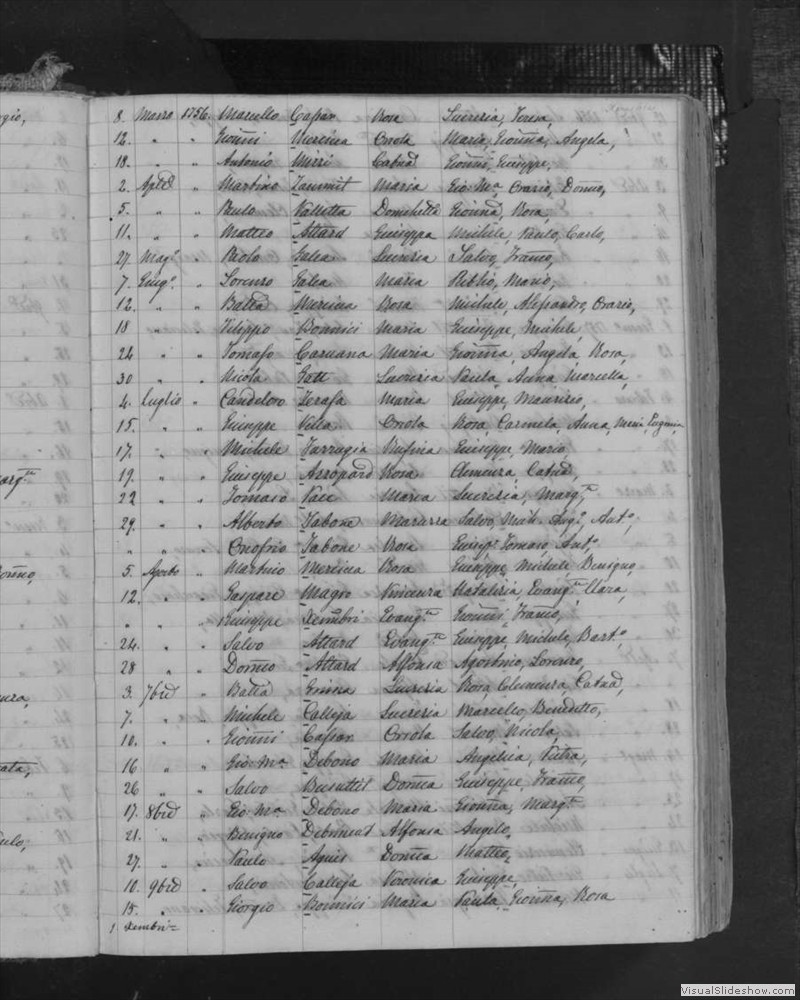 8. Marzo 1756. Marcello Caspar Rosa Lucrezia, Teresa,
12. " " Gioñni Mercieca Orsola Maria, Gioñna, Angela,
18. " " Antonio Mizzi Catad Gioñni, Giuseppe,
2. Aple " Martino Zammit Maria Gio: Ma, Orazio, Domco,
5. " " Paulo Valletta Domchella Gioñna, Rosa,
11. " " Matteo Attard Giuseppa Michele, Paulo, Carlo,
27. Mago " Paolo Galea Lucrezia Salvo, Franco,
7. Giugo. " Lorenzo Galea Maria Publio, Mario,
12. " " Batta Mercieca Rosa Michele, Alessandro, Orazio,
18 " " Filippo Bonnici Maria Giuseppe, Michele,
24 " " Tomaso Caruana Maria Gioñna, Angela, Rosa,
30 " " Nicola Gatt Lucrezia Paula, Anna, Marcella,
4. Luglio " Candeloro Zerafa Maria Giuseppe, Maurizio,
15. " " Giuseppe Vella Orsola Rosa, Carmela, Anna, Maria, Eugenia,
17. " " Michele Farrugia Rufina Giuseppe, Mario,
19. " " Giuseppe Azzopard Rosa Clemenza, Catad,
22 " " Tomaso Pace Maria Lucrezia, Margta
29. " " Alberto Tabone Maruzza Salvo, Mich. Ango, Anto,
" " " Onofrio Tabone Rosa Giuspe Tomaso, Anto.
5. Agosto " Martino Mercieca Rosa Giuseppe, Michele, Benigno,
12. " " Gaspare Magro Vincenza Natalizia, Evangta Clara,
" " " Giuseppe Xembri Evangta Gioñni, Franco,
24. " " Salvo Attard Evangta Giuseppe, Michele, Barto.
28 " " Domco Attard Alfonsa Agostino, Lorenzo,
3. 7bre " Batta Grima Lucrezia Rosa, Clemenza, Catad,
7. " " Michele Calleja Lucrezia Marcello, Benedetto,
10. " " Gioñni Caspar Orsola Salvo, Nicola,
16 " " Gio: Ma Debono Maria Angelica, Pietra,
26 " " Salvo Busuttil Domca Giuseppe, Franco,
17. 8bre " Gio: Ma Debono Maria Gioñna, Margta
21. " " Benigno Alfonsa Angelo,
27. " " Paulo Agius Domca Matteo,
10. 9bre " Salvo Calleja Veronica Giuseppe,
18. " " Giorgio Bonnici Maria Paula, Gioñna, Rosa
1 Xembri=
VisualSlideshow.com